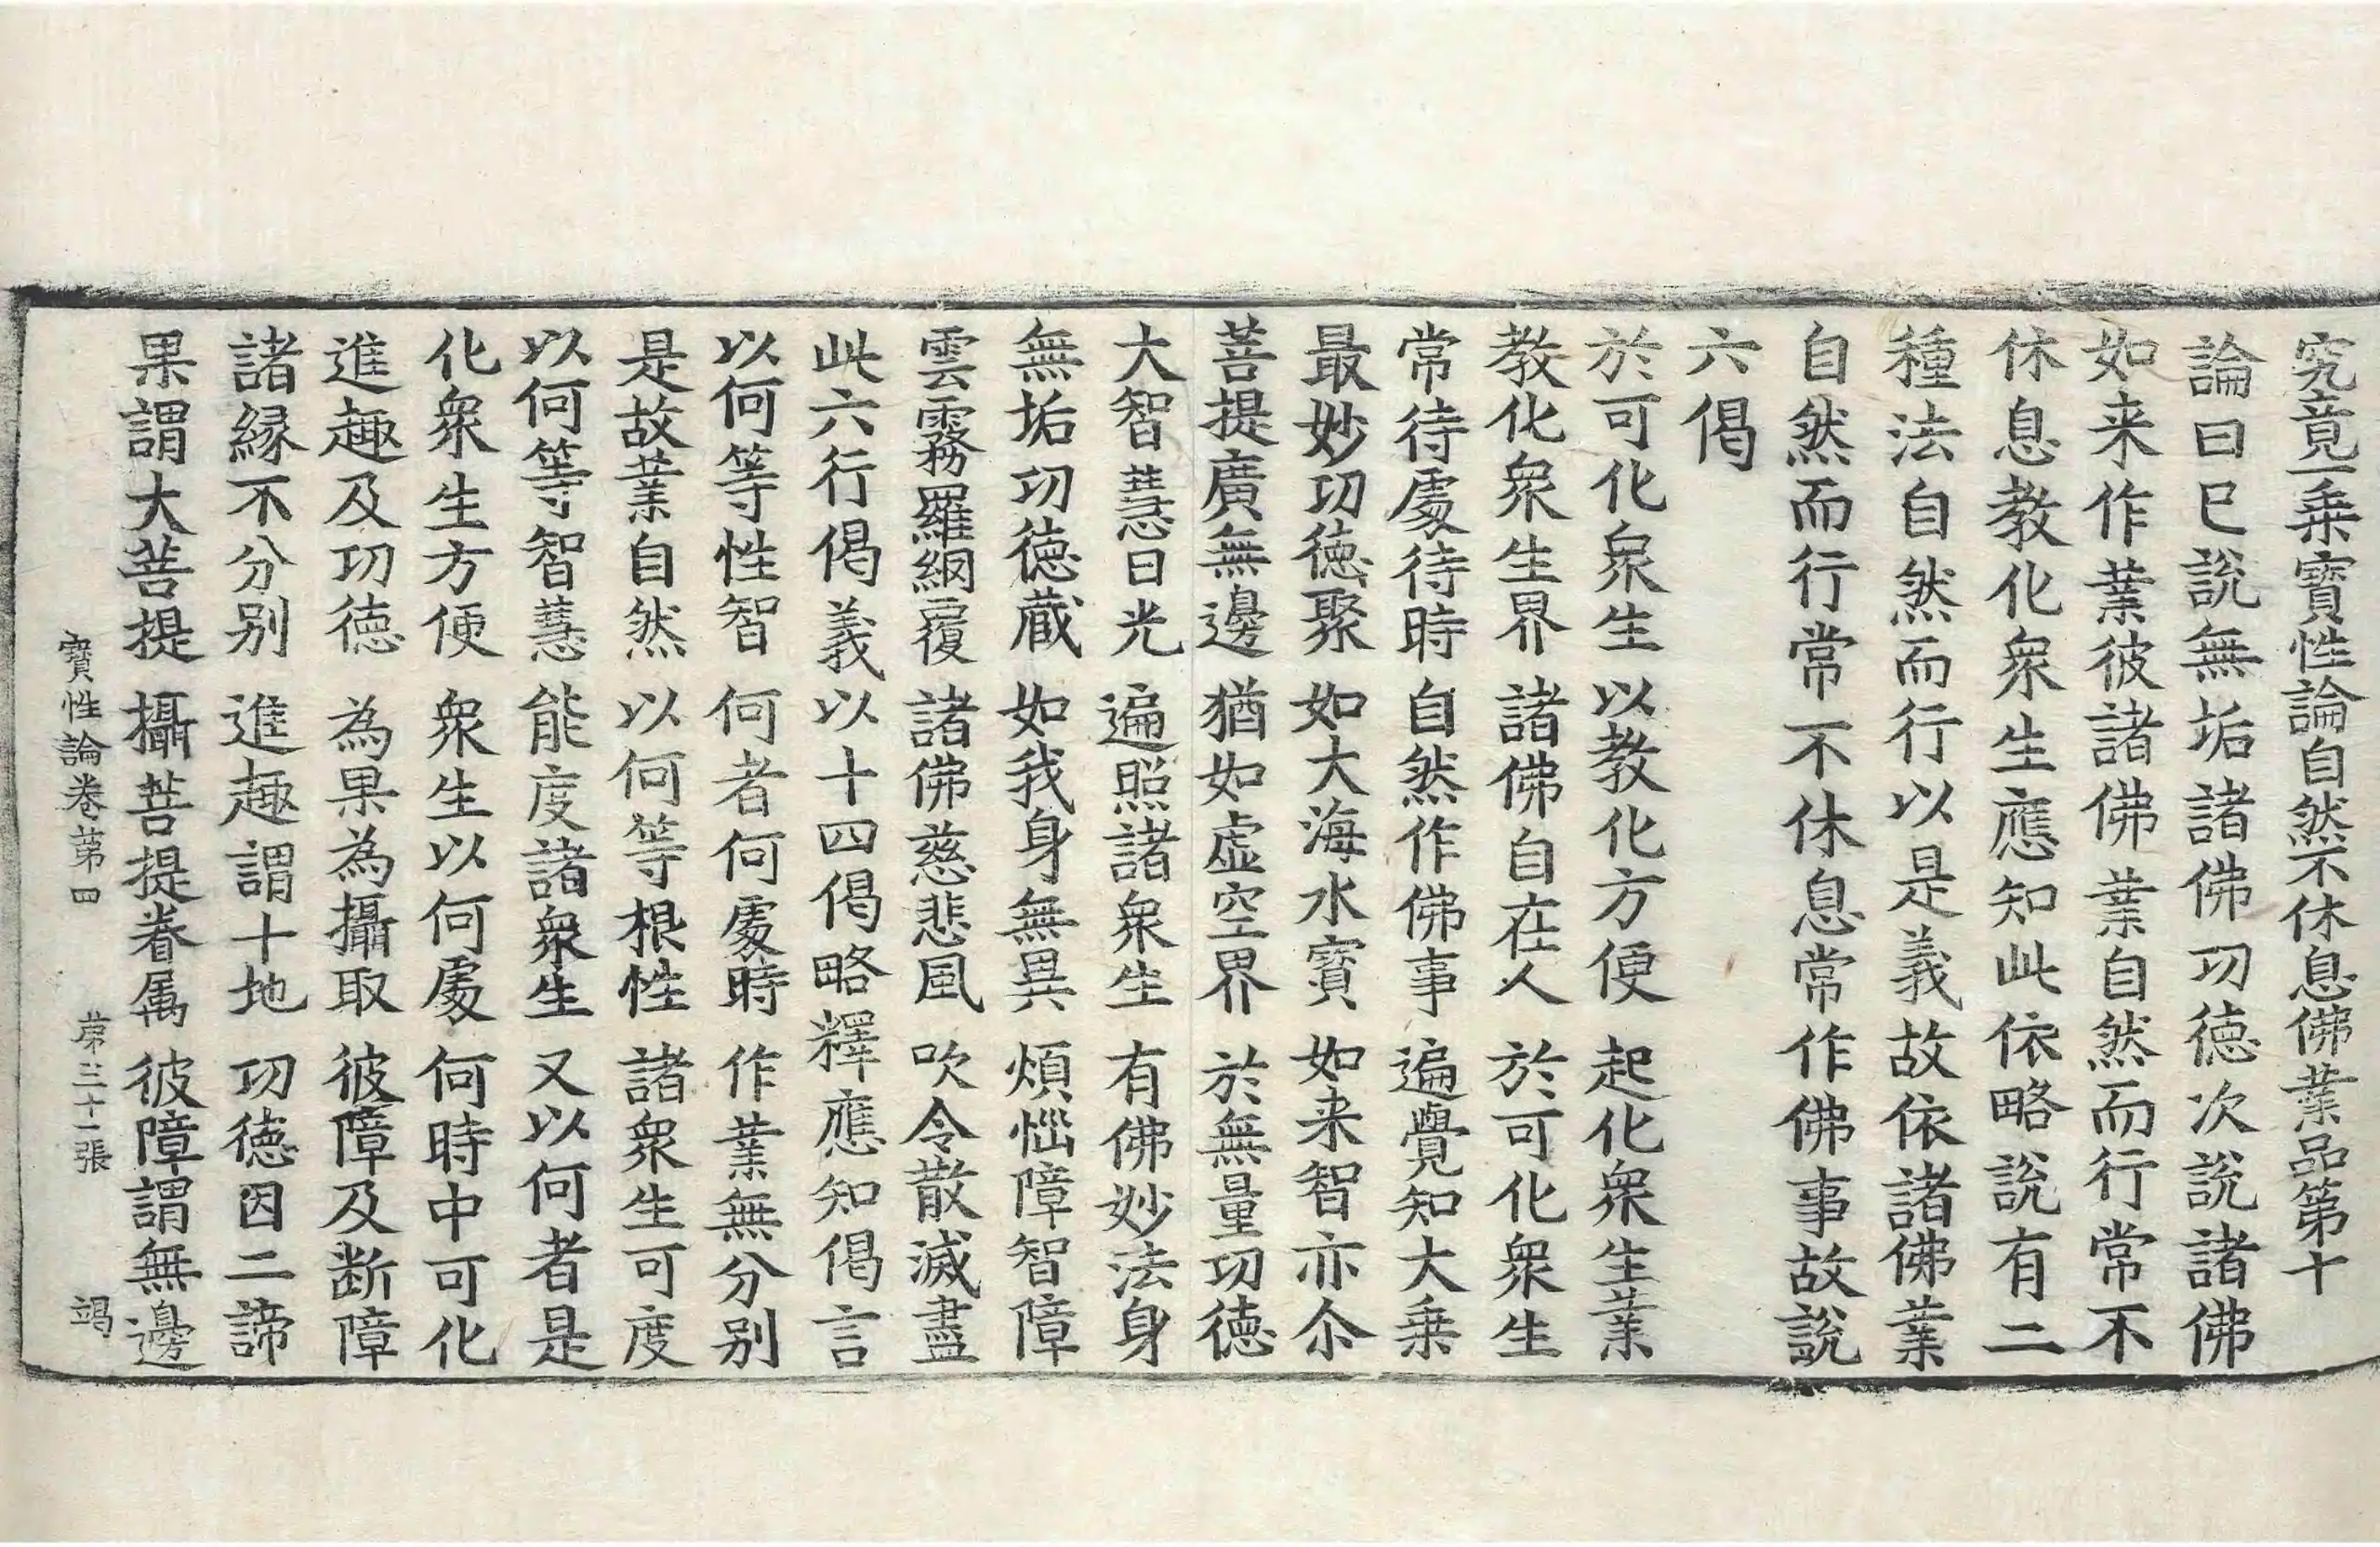 究竟一乗寶性論自然不休息佛業品第十
論曰已說無垢諸佛功徳次說諸佛
如来作業彼諸佛業自然而行常不
休息教化衆生應知此依略說有二
種法自然而行以是義故依諸佛業
自然而行常不休息常作佛事故說
六偈
於可化衆生 以教化方便 起化衆生業
教化衆生界 諸佛自在人 於可化衆生
常待處待時 自然作佛事 遍覺知大乗
最妙功徳聚 如大海水寶 如来智亦尒
菩提廣無邊 猶如虛空界 於無量功徳
大智慧日光 遍照諸衆生 有佛妙法身
無垢功徳蔵 如我身無異 煩惱障智障
雲霧羅網覆 諸佛慈悲風 吹令散滅盡
此六行偈義以十四偈略釋應知偈言
以何等性智 何者何處時 作業無分别
是故業自然 以何等根性 諸衆生可度
以何等智慧 能度諸衆生 又以何者是
化衆生方便 衆生以何處 何時中可化
進趣及功徳 為果為攝取 彼障及断障
諸縁不分别 進趣謂十地 功徳因二諦
果謂大菩提 攝菩提眷属 彼障謂無邊
寶性論卷第四 第三十一張 竭